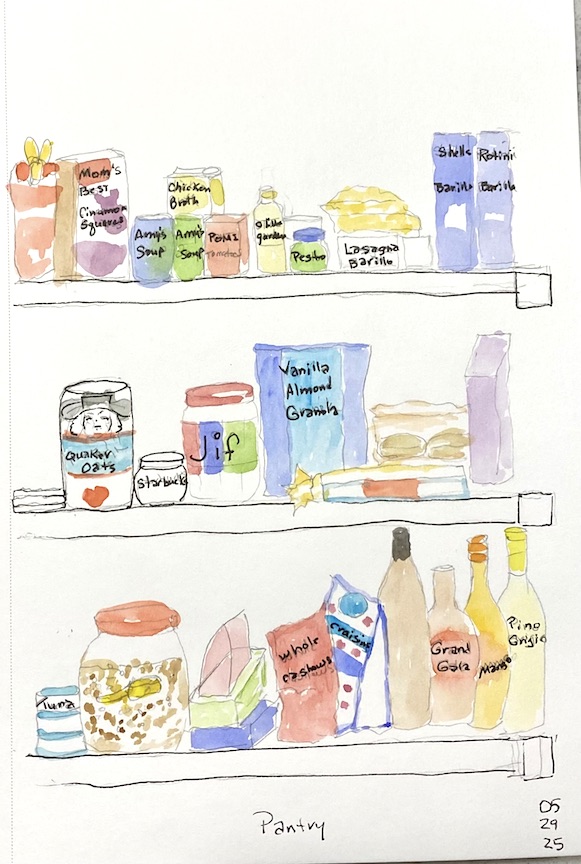 Mom's
Best
Cinnamon
Squares
Chicken
Broth
Amy's
Soup
Amy's
Soup
POMI
tomatoes
garden
Pesto
Lasagna
Barilla
Shells
Barilla
Rotini
Barilla
Quaker
Oats
Starbucks
Jif
Vanilla
Almond
Granola
Tuna
Whole
cashews
craisins
Grand
Gala
Mango
Pino
Grigio
Pantry
05
29
25